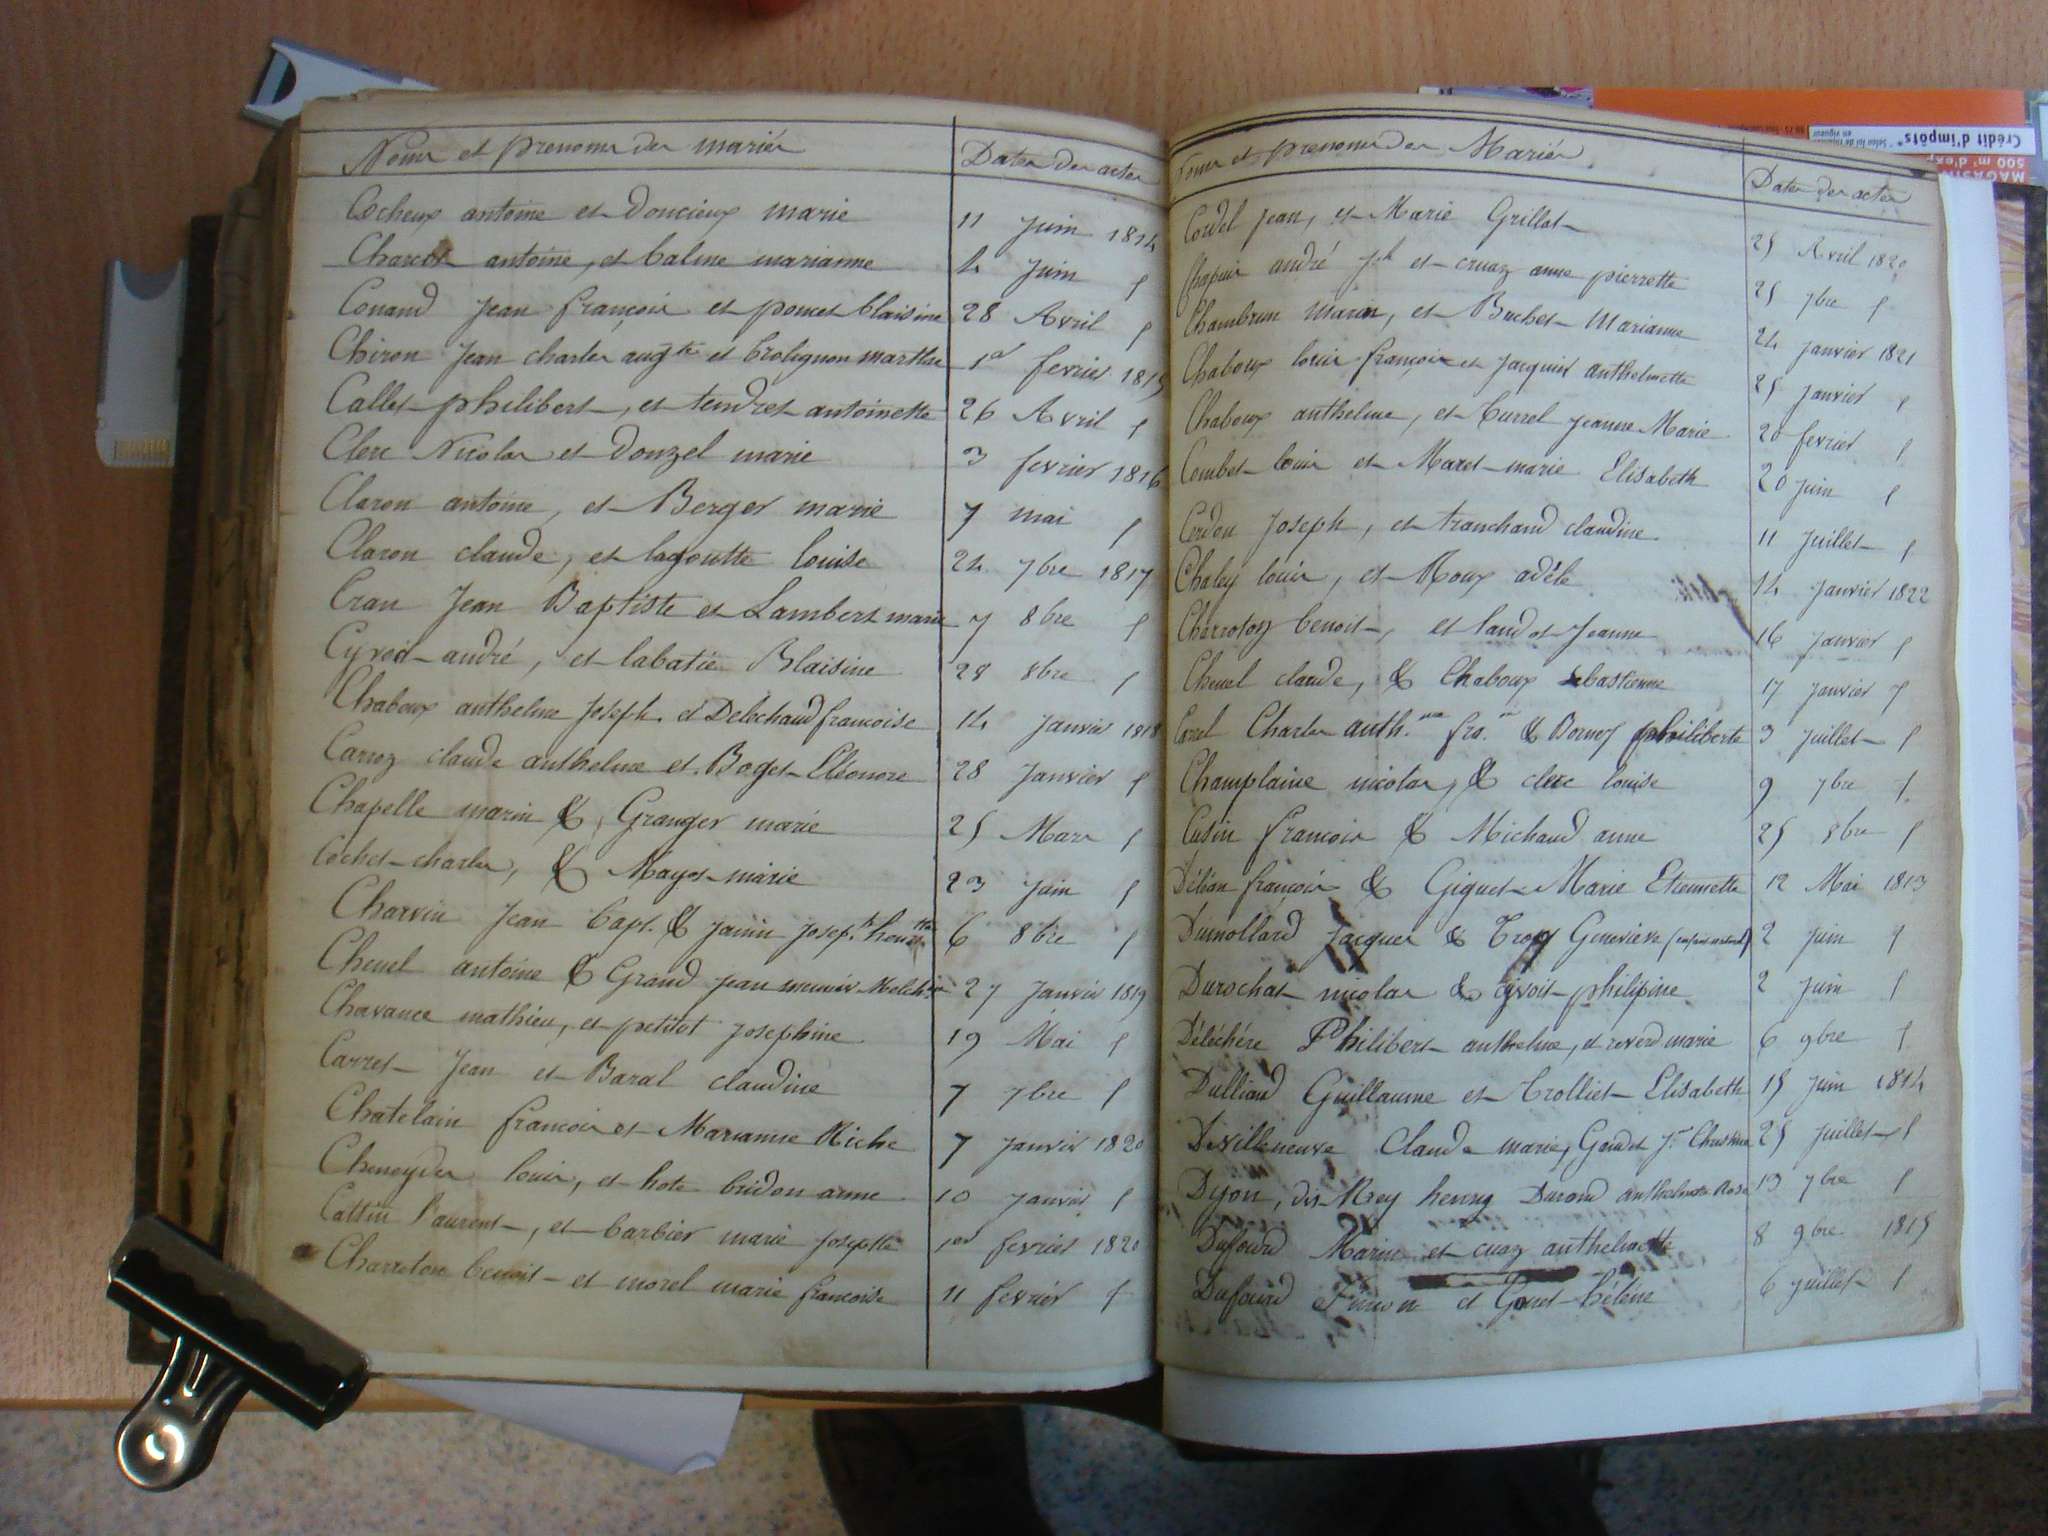 Noms et prenoms des mariés Dates des actes
Cocheux antoine et Doucieux marie 11 Juin 1814
Charcot antoine, et Calme marianne 4 Juin
Conand Jean françois et poncet blaisine 28 Avril
Chiron Jean charles augte et marthe 1er fevrier 1815
Callet philibert, et tendret antoinette 26 Avril
Clerc Nicolas et Donzel marie 3 fevrier 1816
Claron antoine, et Berger marie 7 mai
Claron claude, et lagoutte louise 24 7bre 1817
Cran Jean Baptiste et Lambert marie 7 8bre
Cyvoct andré, et labatie Blaisine 28 8bre
Chaboux anthelme Joseph et Deléchaud francoise 14 Janvier 1818
Carroz claude anthelme et Boget Eléonore 28 Janvier
Chapelle marin & Granger marie 25 Mars
Cochet charles, & Mayot marie 23 Juin
Charvin Jean bapt. & Janin Joseph.te 6 8bre
Chenel antoine & Grand jean 27 Janvier 1819
Chavance mathieu, et petitot Josephine 19 Mai
Carret Jean et Baral claudine 7 7bre
Chatelain francois et Marianne Riche 7 Janvier 1820
Cheneyder louis, et hote bridon anne 10 Janvier
Cattin Laurent, et barbier marie Josephte 1er fevrier 1820
Charreton benoit et morel marie francoise 11 fevrier
Noms et prenoms des Mariés Dates des actes
Cordel Jean, et Marie Grillot 25 Avril 1820
Chapuis andré Jph et cruaz anne pierrette 25 7bre
Chambrun Marin, et Buchet Marianne 24 Janvier 1821
Chaboux louis françois et Jacquier anthelmette 25 Janvier
Chaboux anthelme, et Currel Jeanne Marie 20 fevrier
Combet louis et Maret marie Elisabeth 20 Juin
Cordon Joseph, et tranchand claudine 11 Juillet
Chaley louis, et Roux adéle 14 Janvier 1822
Charreton benoit, et landot Jeanne 16 Janvier
Chenel claude, & Chaboux sebastienne 17 Janvier
Carrel Charles anth.me fro. & Bornet philiberte 3 Juillet
Champlaine nicolas, & clerc louise 9 7bre
Cusin francois & Michaud anne 25 8bre
Délian françois & Giguet Marie Etiennette 12 Mai 1813
Dumollard Jacques & Troy Genevieve (enfant naturel) 2 Juin
Durochat nicolas & philipine 2 Juin
Déléchére Philibert anthelme, et reverd marie 6 9bre
Dulliand Guillaume et Trolliet Elisabeth 15 Juin 1814
Devilleneuve Claude marie, Goudet Je Christine 25 Juillet
Dyon, dit Rey henry Durand anthelmete Rose 13 7bre
Dufourd Marin et cuaz anthelmette 8 9bre 1815
Dufourd Simon et Gonet hélène 6 Juillet
Crédit d'impôts*
500 m² d'exp